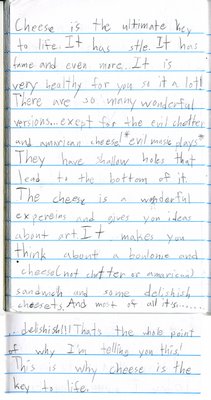 Cheese is the ultimate key
to life. It has stle. It has
fame and even more. It is
very healthy for you so it a lot!
There are so many wonderful
versions... except for the evil chetter
and amarican cheese! *evil music plays*
They have shallow holes that
lead to the bottom of it.
The cheese is a wonderful
expereins and gives you ideas
about art. It makes you
think about a bowlonie and
cheese(not chetter or amarican)
sandwich and some delishish
cheesets. And most of all its......
...delishish!!! Thats the whole point
of why I'm telling you this!
This is why cheese is the
key to life.